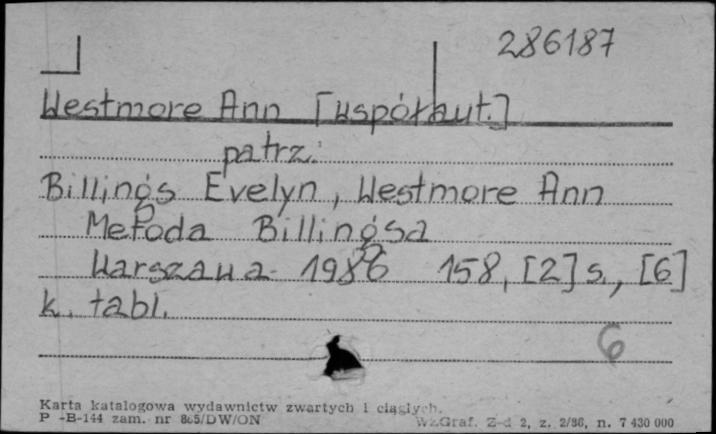 286187
Westmore Ann [współaut.]
patrz:
Billings Evelyn, Westmore Ann
Metoda Billingsa
Warszawa 1986 158, [2] s., [6]
k. tabl.
6
Karta katalogowa wydawnictw zwartych i ciągłych.
P-B-144 zam. nr 865/DW/ON WzGraf. Z-d 2, z. 2/86, n. 7 430 000